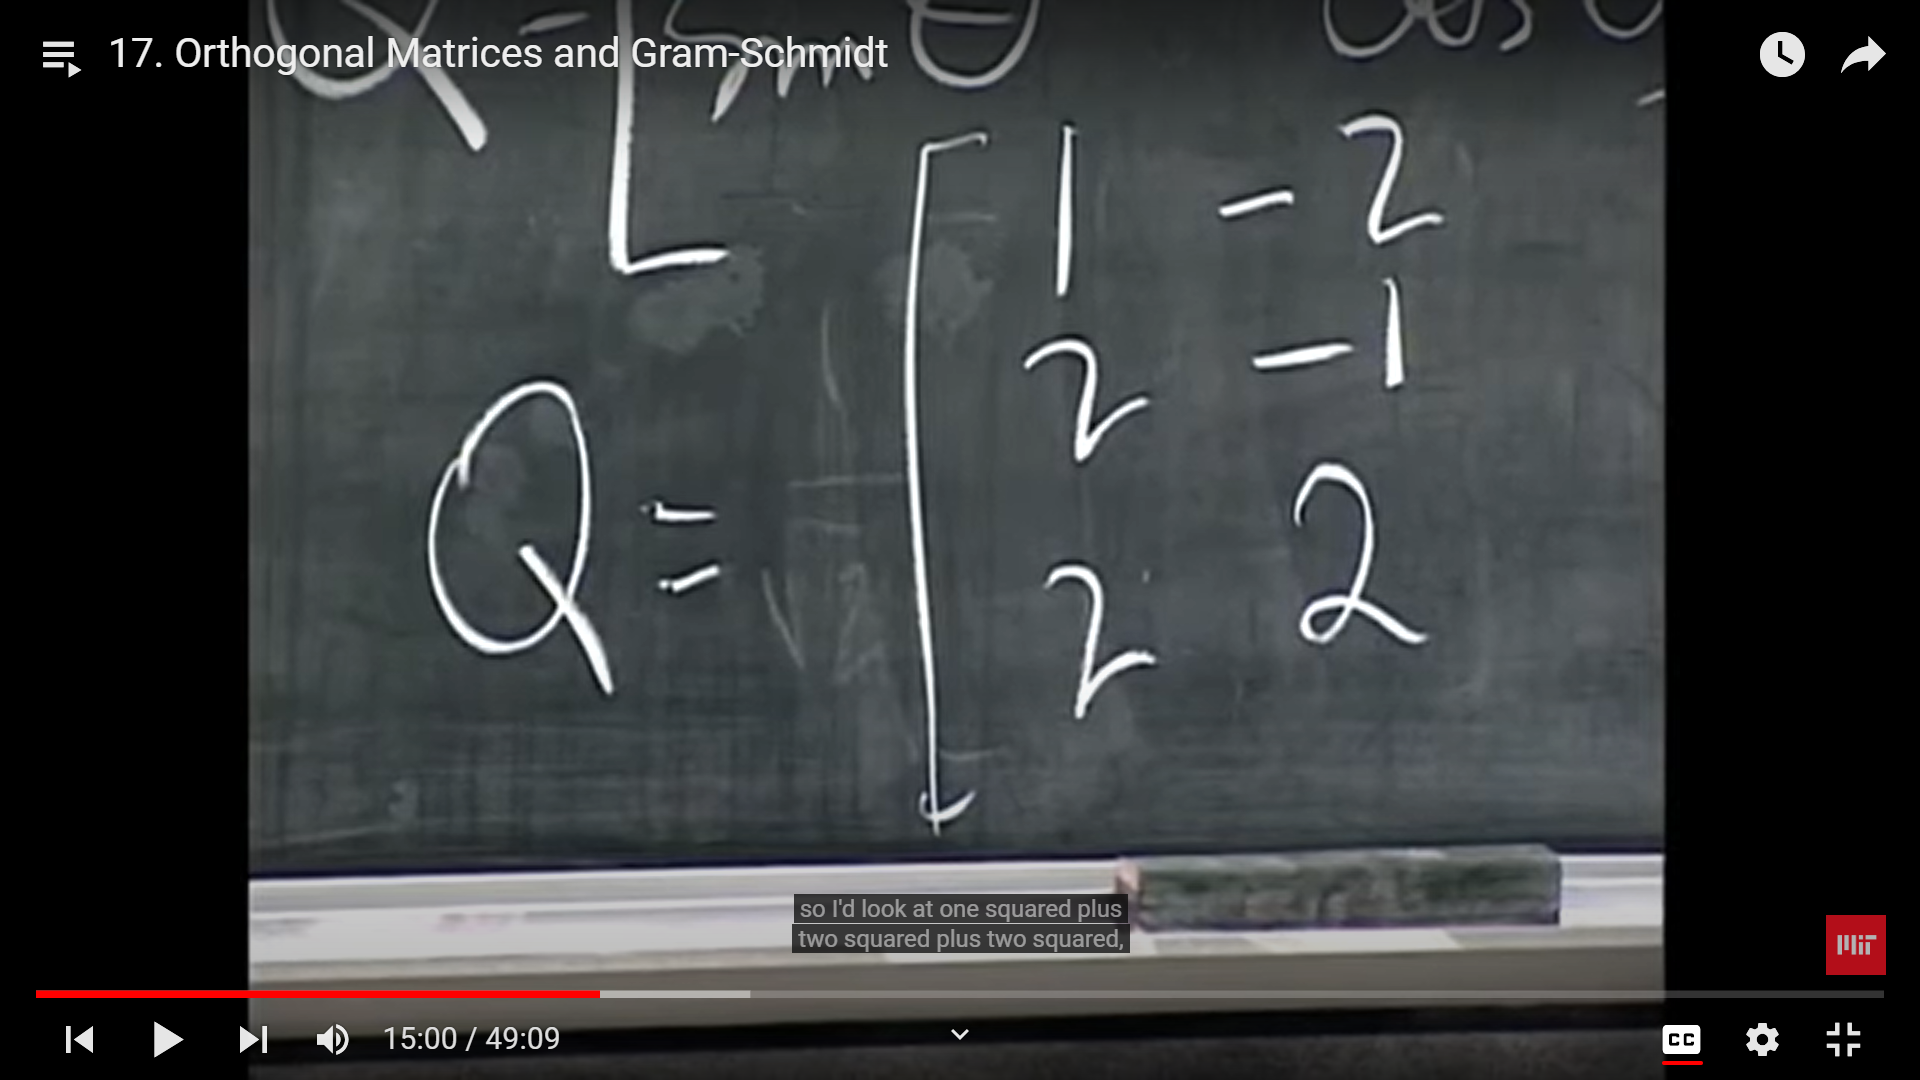 17. Orthogonal Matrices and Gram-Schmidt
Q = [ sin θ cos
Q = [ 1 -2
2 -1
2 2
so I'd look at one squared plus
two squared plus two squared,
MIT
15:00 / 49:09
CC